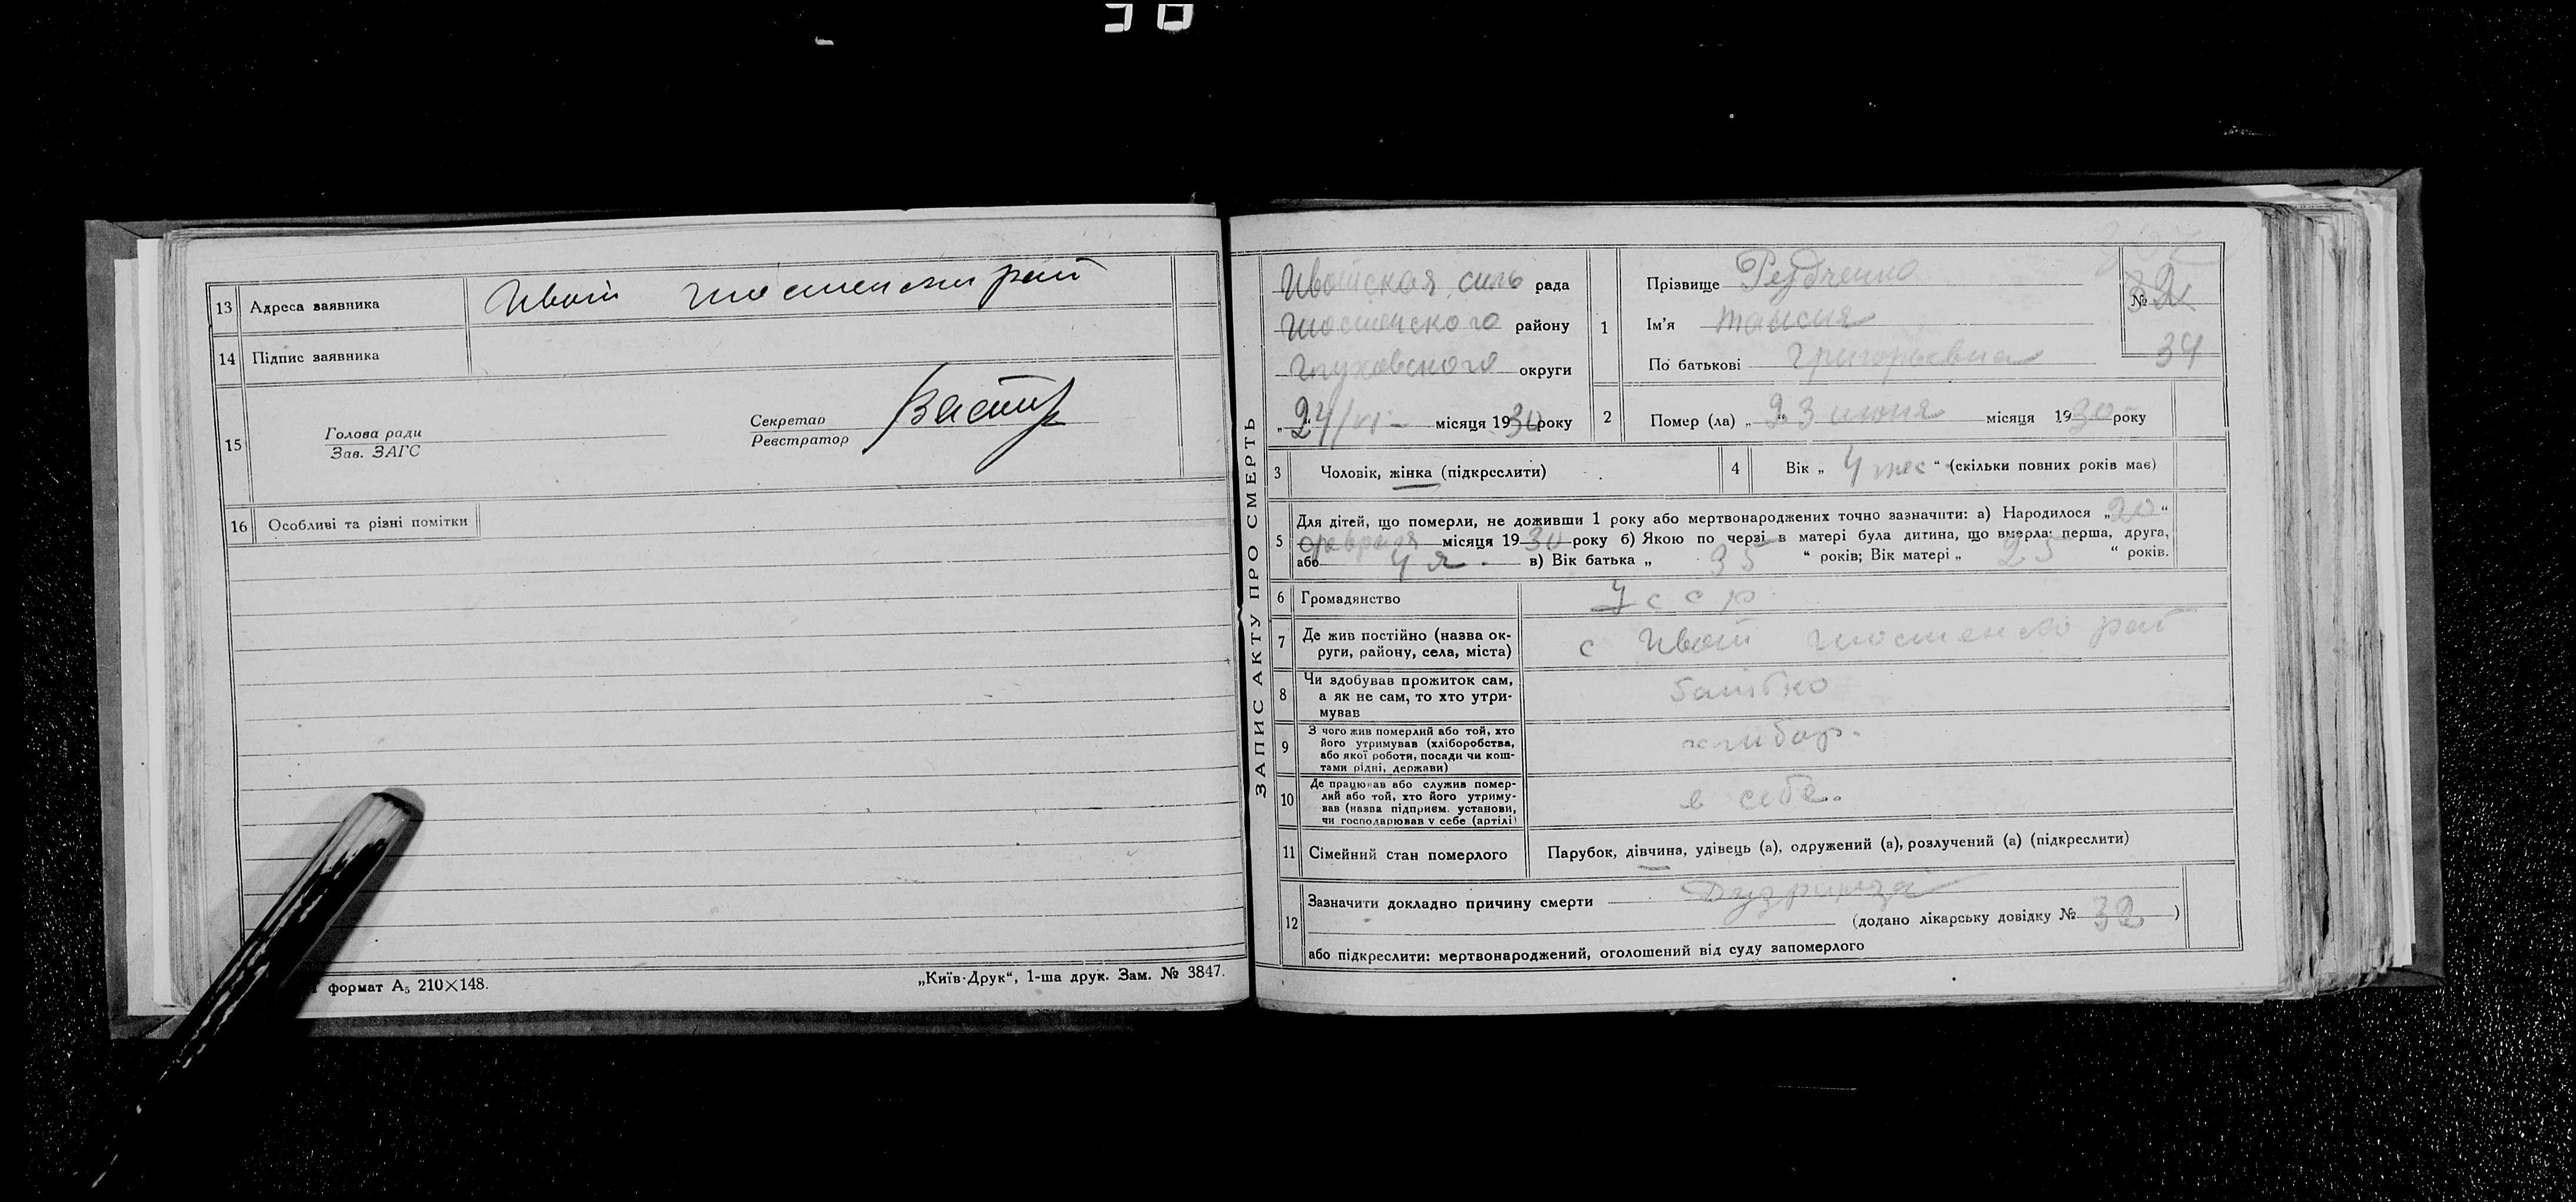 30
13 Адреса заявника Ивот Шостенски рай
14 Підпис заявника
15 Голова ради
Зав. ЗАГС
Секретар
Реєстратор
16 Особливі та різні помітки
формат А₅ 210×148.
„Київ-Друк“, 1-ша друк. Зам. № 3847.
ЗАПИС АКТУ ПРО СМЕРТЬ
Ивотская силь рада
Шостенского району
Глуховского округи
„24/VI- місяця 1930 року
1 Прізвище
Ім'я Таисия
По батькові Григорьевна
№ 32
34
2 Помер (ла) „23 июня місяця 1930 року
3 Чоловік, жінка (підкреслити)
4 Вік „ 4 мес “ (скільки повних років має)
5 Для дітей, що померли, не доживши 1 року або мертвонароджених точно зазначити: а) Народилося „20“
февраля місяця 1930 року б) Якою по черзі в матері була дитина, що вмерла: перша, друга,
або 4 я. в) Вік батька „ 35 “ років; Вік матері „ 25 “ років.
6 Громадянство УССР
7 Де жив постійно (назва ок-
руги, району, села, міста) с Ивот Шостенско рай
8 Чи здобував прожиток сам,
а як не сам, то хто утри-
мував батько
9 З чого жив померлий або той, хто
його утримував (хліборобства,
або якої роботи, посади чи кош-
тами рідні, держави) хлибор.
10 Де працював або служив помер-
лий або той, хто його утриму-
вав (назва підприєм. установи,
чи господарював у себе (артілі) в себе.
11 Сімейний стан померлого Парубок, дівчина, удівець (а), одружений (а), розлучений (а) (підкреслити)
12 Зазначити докладно причину смерти
(додано лікарську довідку № 32 )
або підкреслити: мертвонароджений, оголошений від суду запомерлого